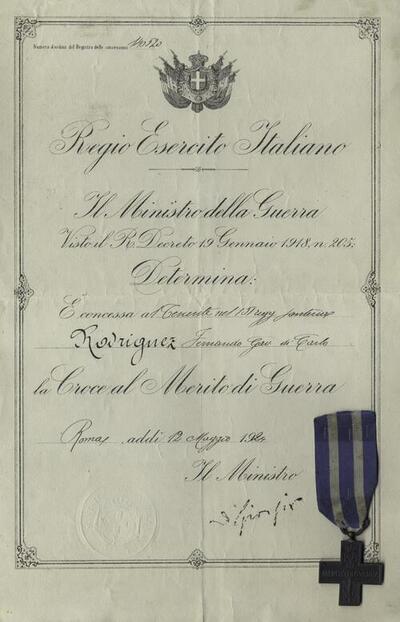 Numero d'ordine del Registro delle concessioni 14020
Regio Esercito Italiano
Il Ministro della Guerra
Visto il R. Decreto 19 Gennaio 1918, n. 205;
Determina:
È concessa al Tenente nel
Rodriguez Fernando di Carlo
la Croce al Merito di Guerra
Roma, addì 12 Maggio 1924
Il Ministro